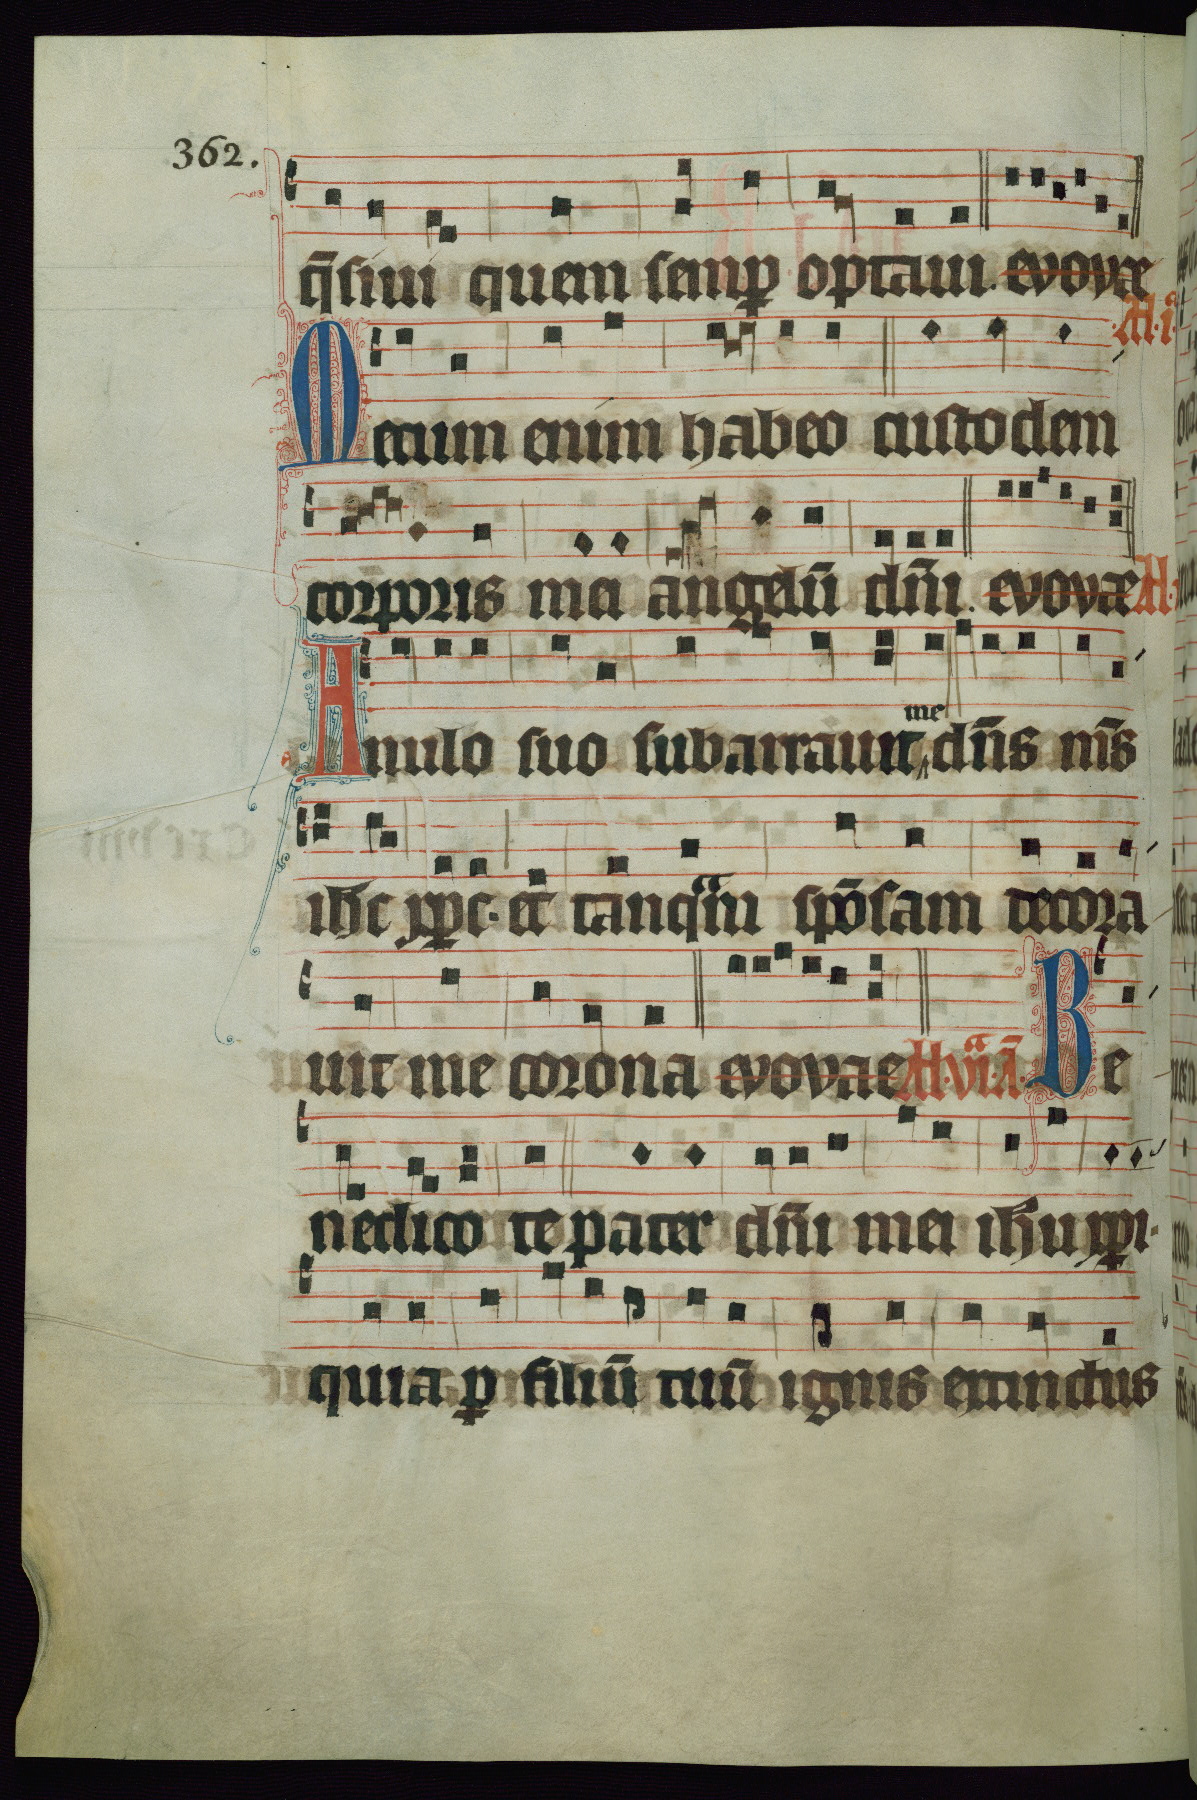 362.
q̄siui quem semp̱ optaui. evovae
A. i.
Mecum enim habeo custodem
corporis mei angelū dn̄i. evovae A.
me
Anulo suo subarrauit dn̄s m̄s
ihc xp̄c. et tanqᵃm spōsam decora
uit me corona evovae A. vi. A. Be
nedico te pater dn̄i mei ihu xp̄i.
quia p̱ filiū tuū ignis extinctus